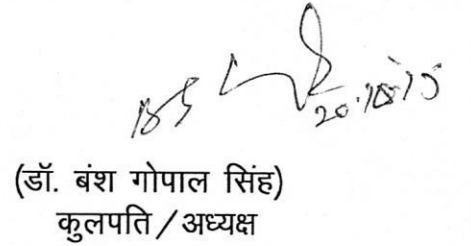 20.10.15
(डॉ. बंश गोपाल सिंह)
कुलपति / अध्यक्ष